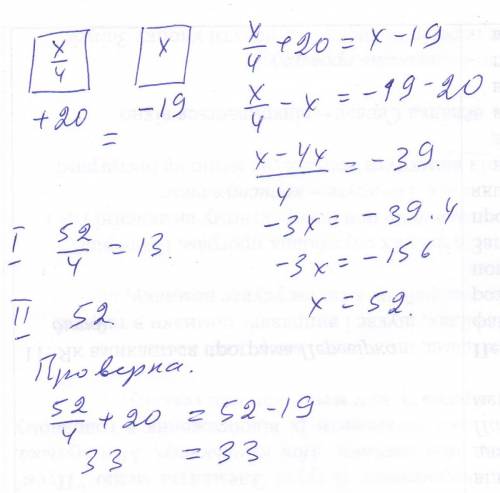 x/4 x
+20 = -19
x/4 + 20 = x - 19
x/4 - x = -19 - 20
(x - 4x)/4 = -39
-3x = -39 · 4
-3x = -156
x = 52.
I 52/4 = 13.
II 52
Проверка.
52/4 + 20 = 52 - 19
33 = 33